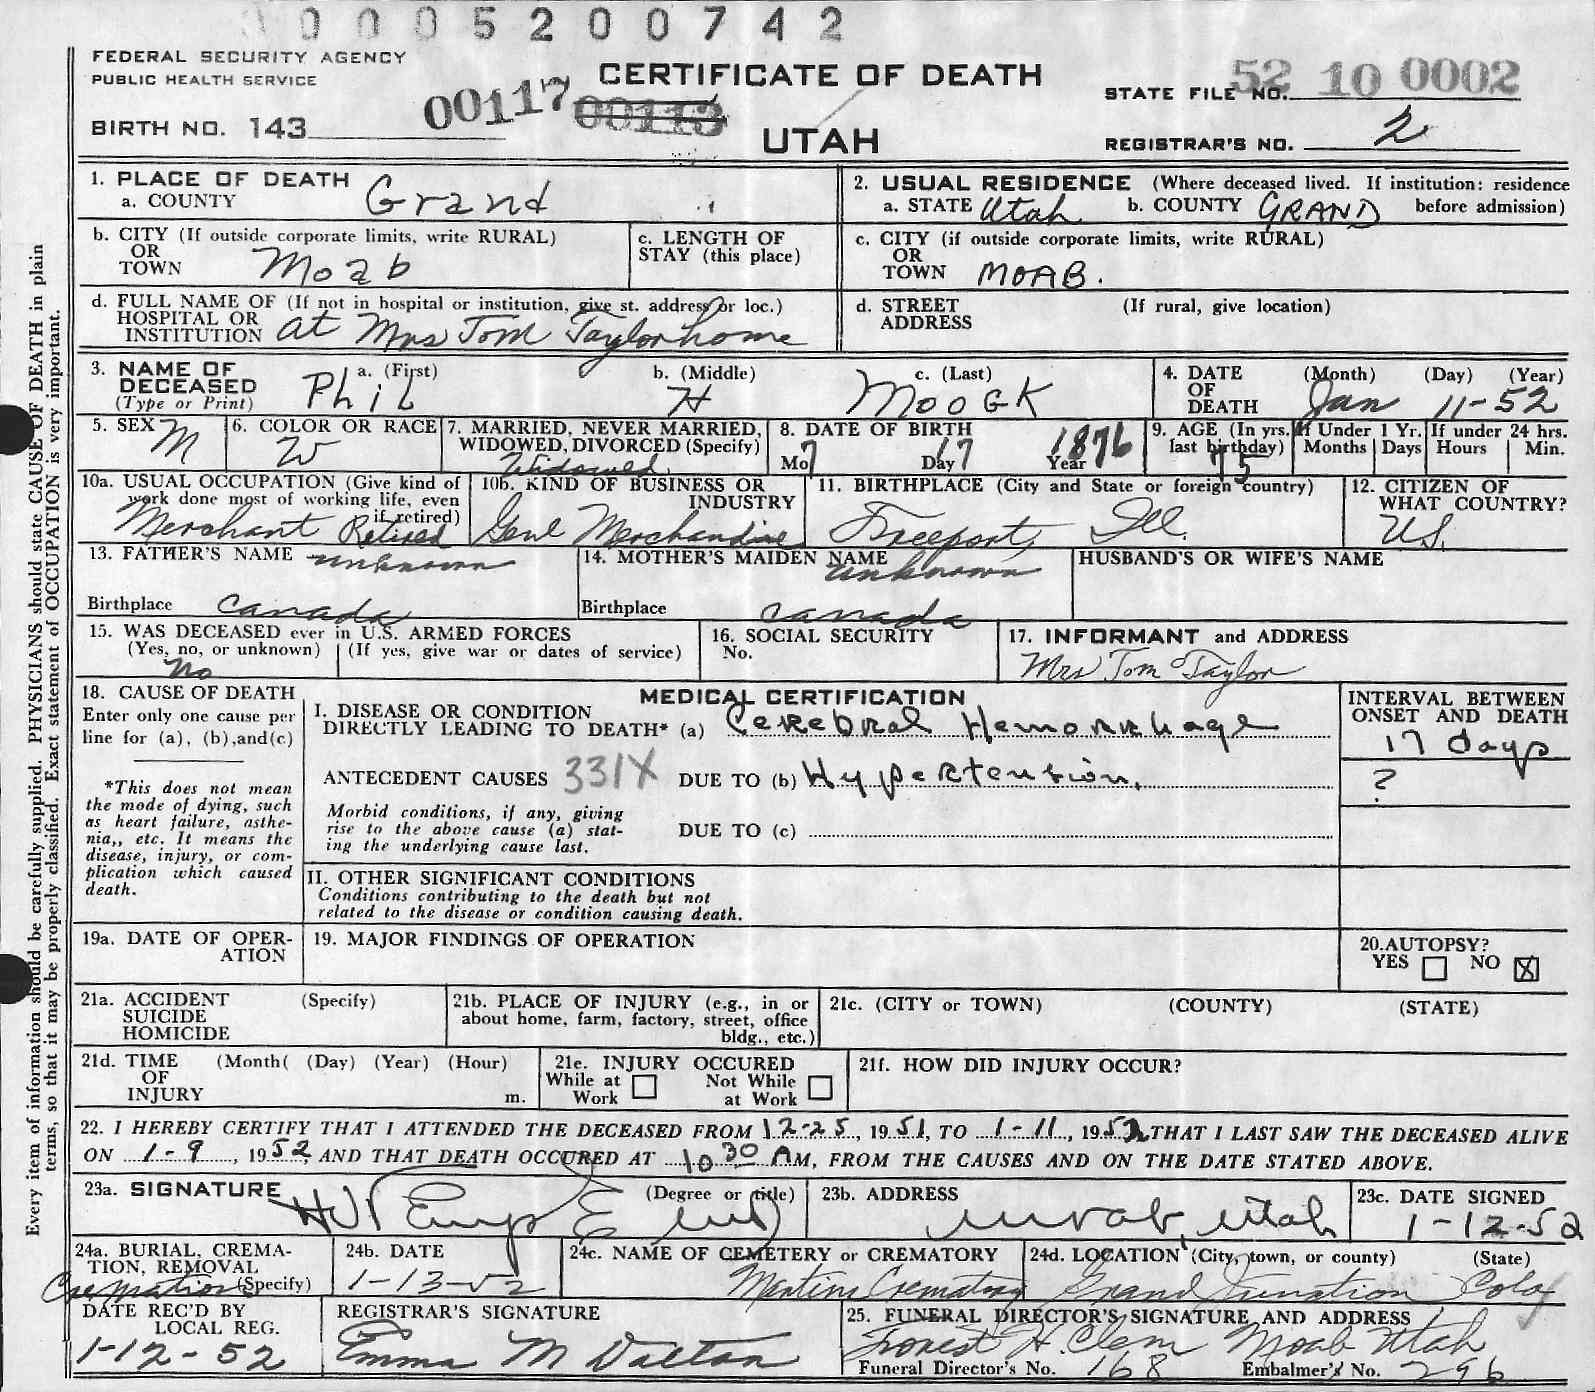 0005200742
FEDERAL SECURITY AGENCY
PUBLIC HEALTH SERVICE
CERTIFICATE OF DEATH
UTAH
BIRTH NO. 143
00117 00113
STATE FILE NO. 52 10 0002
REGISTRAR'S NO. 2
Every item of information should be carefully supplied. PHYSICIANS should state CAUSE OF DEATH in plain
terms, so that it may be properly classified. Exact statement of OCCUPATION is very important.
1. PLACE OF DEATH
a. COUNTY Grand
2. USUAL RESIDENCE (Where deceased lived. If institution: residence
a. STATE Utah b. COUNTY GRAND before admission)
b. CITY (If outside corporate limits, write RURAL)
OR
TOWN Moab
c. LENGTH OF
STAY (this place)
c. CITY (if outside corporate limits, write RURAL)
OR
TOWN MOAB.
d. FULL NAME OF (If not in hospital or institution, give st. address or loc.)
HOSPITAL OR
INSTITUTION at Mrs Tom Taylor home
d. STREET (If rural, give location)
ADDRESS
3. NAME OF
DECEASED
(Type or Print)
a. (First) Phil
b. (Middle) H
c. (Last) MOOGK
4. DATE
OF
DEATH
(Month) (Day) (Year)
Jan 11-52
5. SEX M
6. COLOR OR RACE W
7. MARRIED, NEVER MARRIED,
WIDOWED, DIVORCED (Specify)
Widowed
8. DATE OF BIRTH
Mo 7 Day 17 Year 1876
9. AGE (In yrs.
last birthday) 75
If Under 1 Yr.
Months Days
If under 24 hrs.
Hours Min.
10a. USUAL OCCUPATION (Give kind of
work done most of working life, even
if retired)
Merchant Retired
10b. KIND OF BUSINESS OR
INDUSTRY
Genl Merchandise
11. BIRTHPLACE (City and State or foreign country)
Freeport, Ill.
12. CITIZEN OF
WHAT COUNTRY?
U.S.
13. FATHER'S NAME unknown
Birthplace Canada
14. MOTHER'S MAIDEN NAME
unknown
Birthplace Canada
HUSBAND'S OR WIFE'S NAME
15. WAS DECEASED ever in U.S. ARMED FORCES
(Yes, no, or unknown) (If yes, give war or dates of service)
No
16. SOCIAL SECURITY
No.
17. INFORMANT and ADDRESS
Mrs Tom Taylor
18. CAUSE OF DEATH
Enter only one cause per
line for (a), (b), and (c)
*This does not mean
the mode of dying, such
as heart failure, asthe-
nia,, etc. It means the
disease, injury, or com-
plication which caused
death.
MEDICAL CERTIFICATION
I. DISEASE OR CONDITION
DIRECTLY LEADING TO DEATH* (a) Cerebral Hemorrhage
ANTECEDENT CAUSES 331X DUE TO (b) Hypertension.
Morbid conditions, if any, giving
rise to the above cause (a) stat-
ing the underlying cause last.
DUE TO (c)
INTERVAL BETWEEN
ONSET AND DEATH
17 days
?
II. OTHER SIGNIFICANT CONDITIONS
Conditions contributing to the death but not
related to the disease or condition causing death.
19a. DATE OF OPER-
ATION
19. MAJOR FINDINGS OF OPERATION
20. AUTOPSY?
YES NO X
21a. ACCIDENT (Specify)
SUICIDE
HOMICIDE
21b. PLACE OF INJURY (e.g., in or
about home, farm, factory, street, office
bldg., etc.)
21c. (CITY or TOWN) (COUNTY) (STATE)
21d. TIME (Month( (Day) (Year) (Hour)
OF
INJURY m.
21e. INJURY OCCURED
While at Not While
Work at Work
21f. HOW DID INJURY OCCUR?
22. I HEREBY CERTIFY THAT I ATTENDED THE DECEASED FROM 12-25, 1951, TO 1-11, 1952, THAT I LAST SAW THE DECEASED ALIVE
ON 1-9, 1952, AND THAT DEATH OCCURED AT 10 30 A M, FROM THE CAUSES AND ON THE DATE STATED ABOVE.
23a. SIGNATURE (Degree or title)
23b. ADDRESS
Moab, Utah
23c. DATE SIGNED
1-12-52
24a. BURIAL, CREMA-
TION, REMOVAL
(Specify)
Cremation
24b. DATE
1-13-52
24c. NAME OF CEMETERY or CREMATORY
Martins Crematory
24d. LOCATION (City, town, or county) (State)
Grand Junction Colo
DATE REC'D BY
LOCAL REG.
1-12-52
REGISTRAR'S SIGNATURE
Emma M Dalton
25. FUNERAL DIRECTOR'S SIGNATURE AND ADDRESS
Forrest H. Clem Moab Utah
Funeral Director's No. 168 Embalmer's No. 296